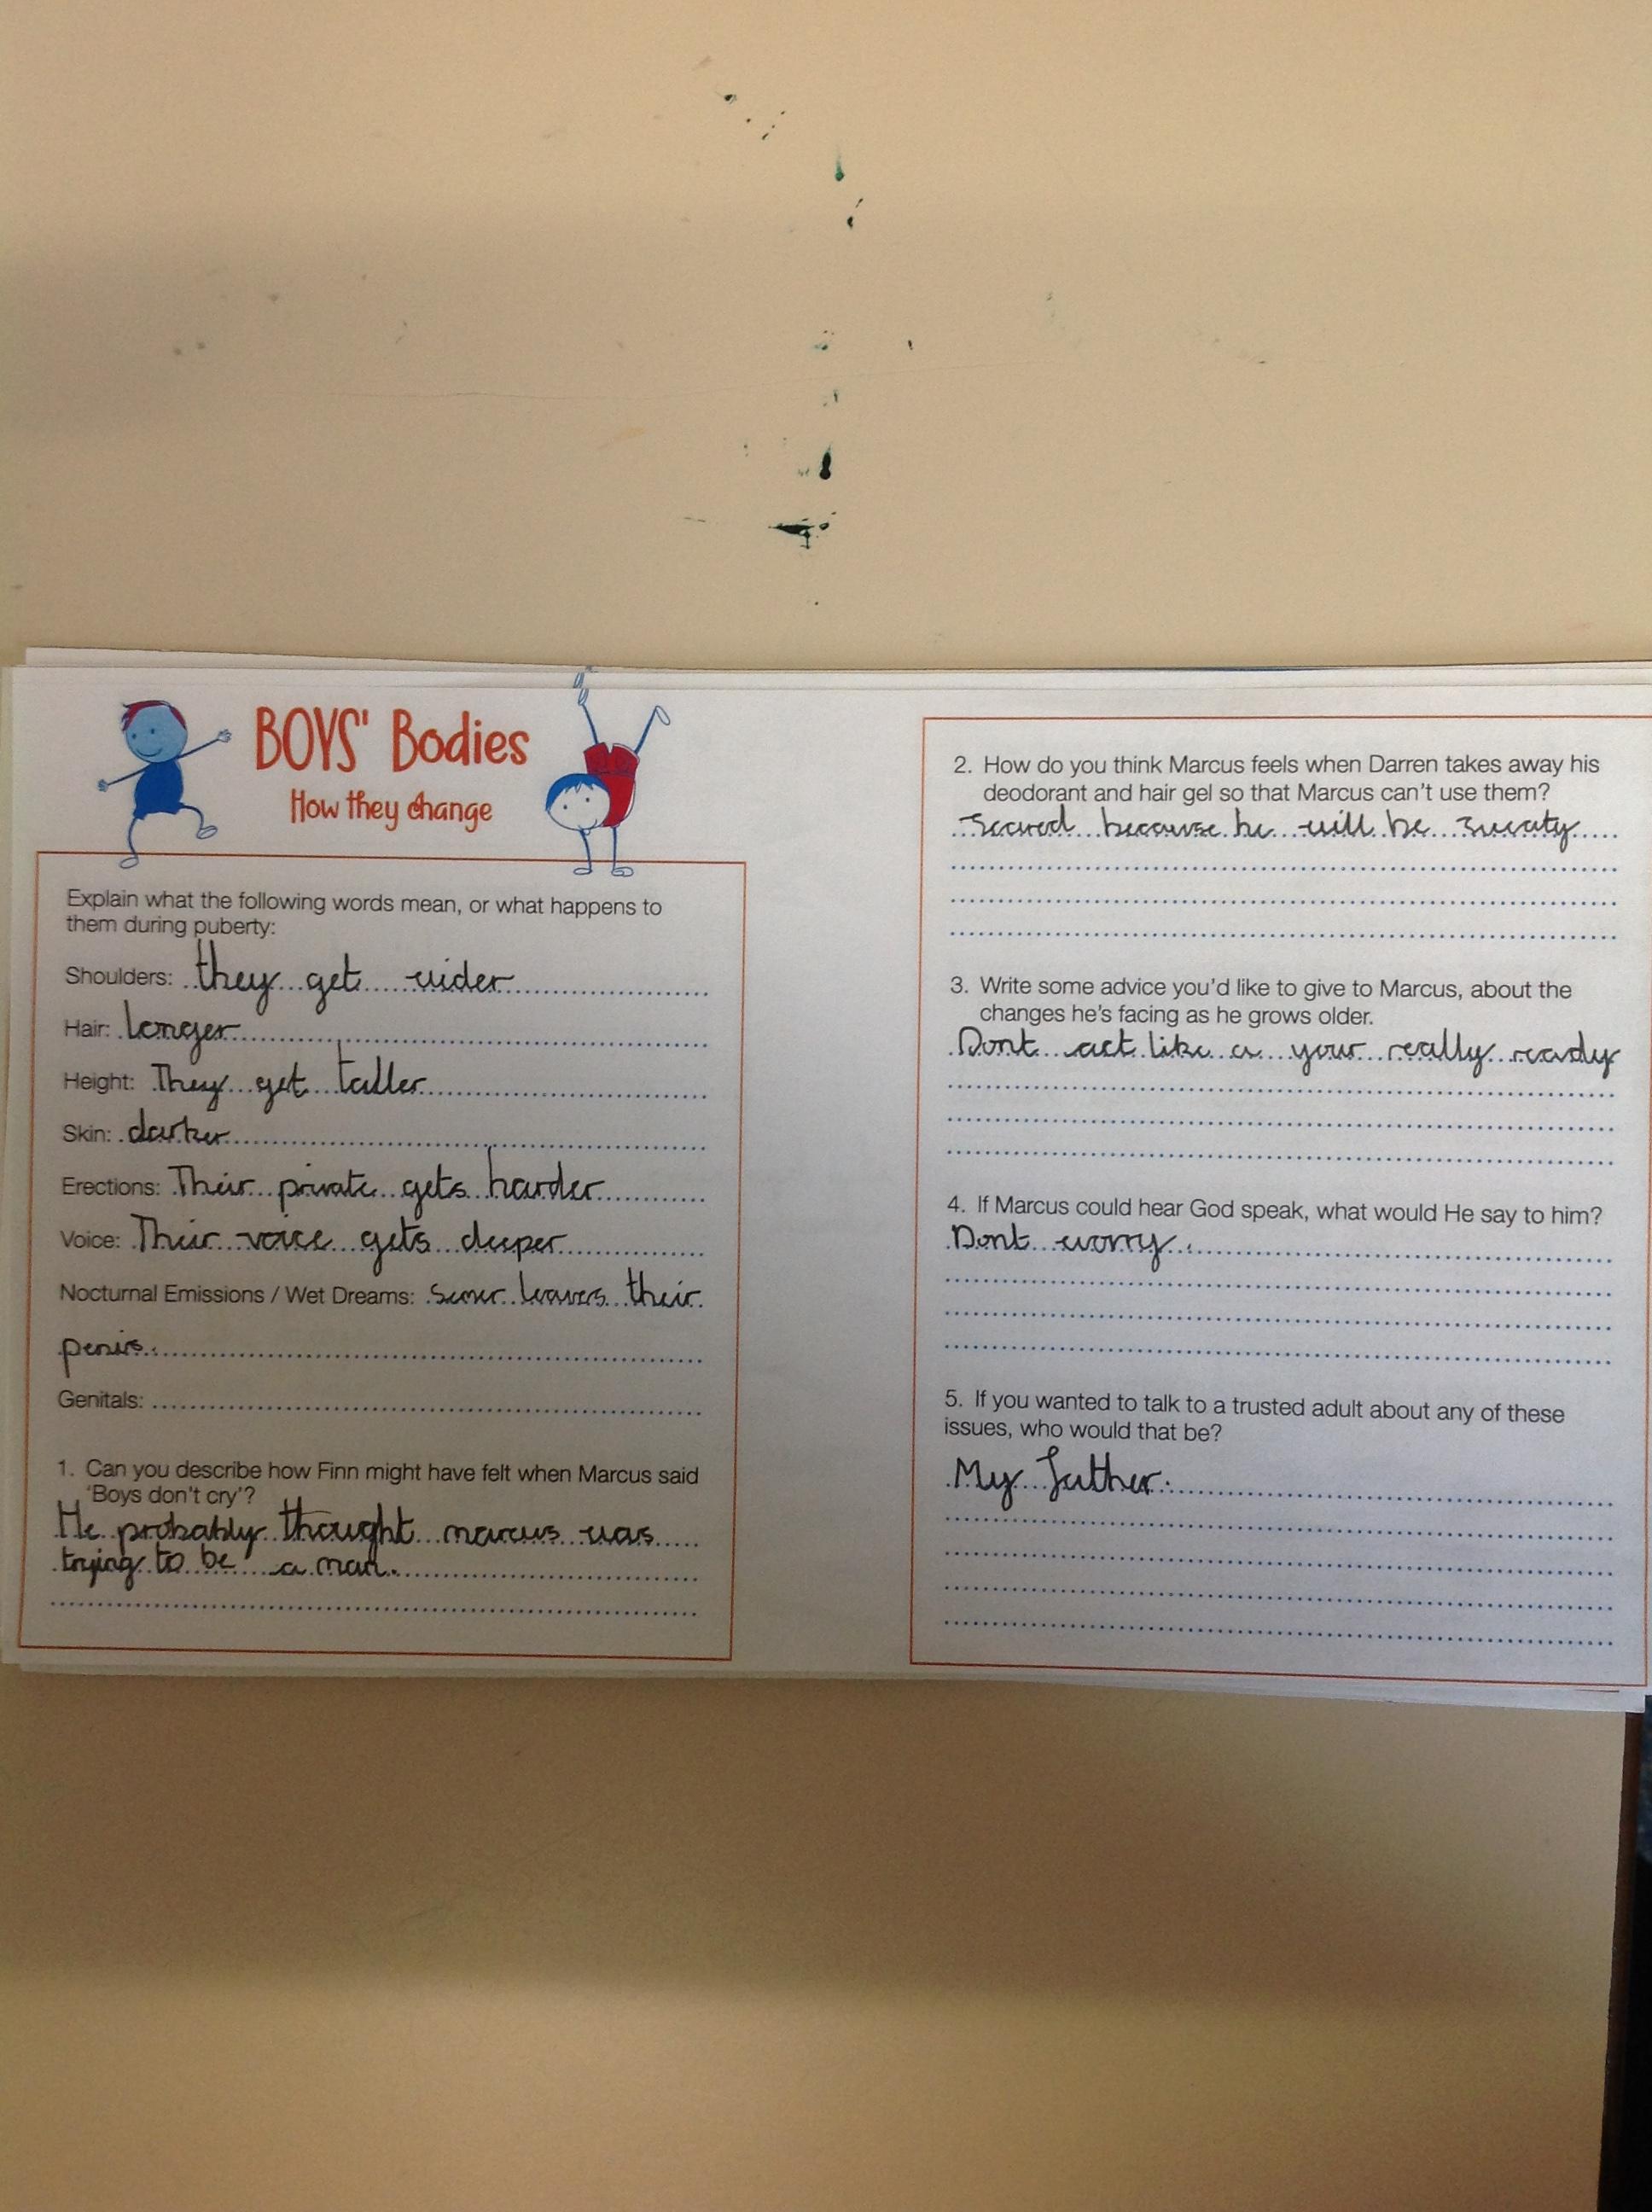 BOYS' Bodies
How they change
Explain what the following words mean, or what happens to
them during puberty:
Shoulders: they get wider
Hair: longer
Height: They get taller
Skin: darker
Erections: Their private gets harder
Voice: Their voice gets deeper
Nocturnal Emissions / Wet Dreams: leaves their
penis.
Genitals:
1. Can you describe how Finn might have felt when Marcus said
'Boys don't cry'?
He probably thought marcus was
trying to be a man.
2. How do you think Marcus feels when Darren takes away his
deodorant and hair gel so that Marcus can't use them?
Scared because he will be sweaty
3. Write some advice you'd like to give to Marcus, about the
changes he's facing as he grows older.
Dont act like a your really ready
4. If Marcus could hear God speak, what would He say to him?
Dont worry.
5. If you wanted to talk to a trusted adult about any of these
issues, who would that be?
My father.